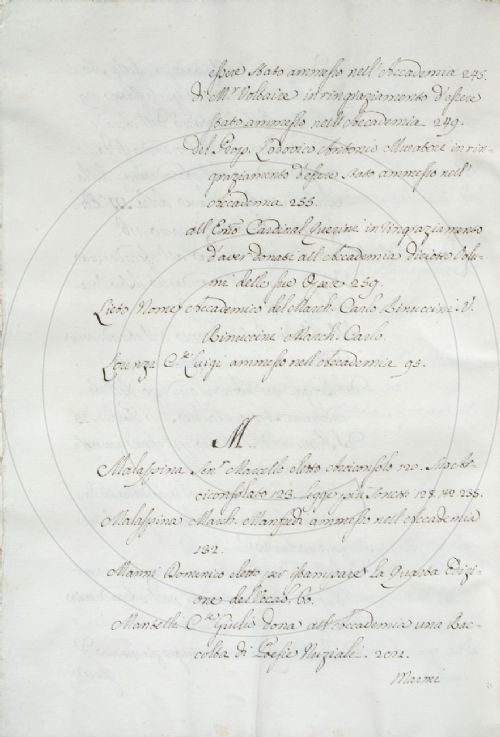 essere stato ammesso nell'Accademia 245.
di Mr. Voltaire in ringraziamento d'essere
stato ammesso nell'Accademia 249.
del Prop. Lodovico Antonio Muratori in rin-
graziamento d'essere stato ammesso nell'
Accademia 255.
all' Emo Cardinal Querini in ringraziamento
d'aver donati all'Accademia diciotto Volu-
mi delle sue Opere 259.
Lieto (Nome Accademico del March. Carlo Rinuccini. V.
Rinuccini March. Carlo.
Lorenzi Cte. Luigi ammesso nell'Accademia 93.
M
Malaspina Senr. Marcello eletto Arciconsolo 120. Suo Ar-
ciconsolato 123. legge più Sonetti 128. 142 235.
Malaspina March. Manfredi ammesso nell'Accademia
132.
Manni Domenico eletto per istampare la Quarta Edizi-
one del Vocab. 60.
Mantelli Cte. Giulio dona all'Accademia una Rac-
colta di Poesie Nuziali. 202.
Marmi